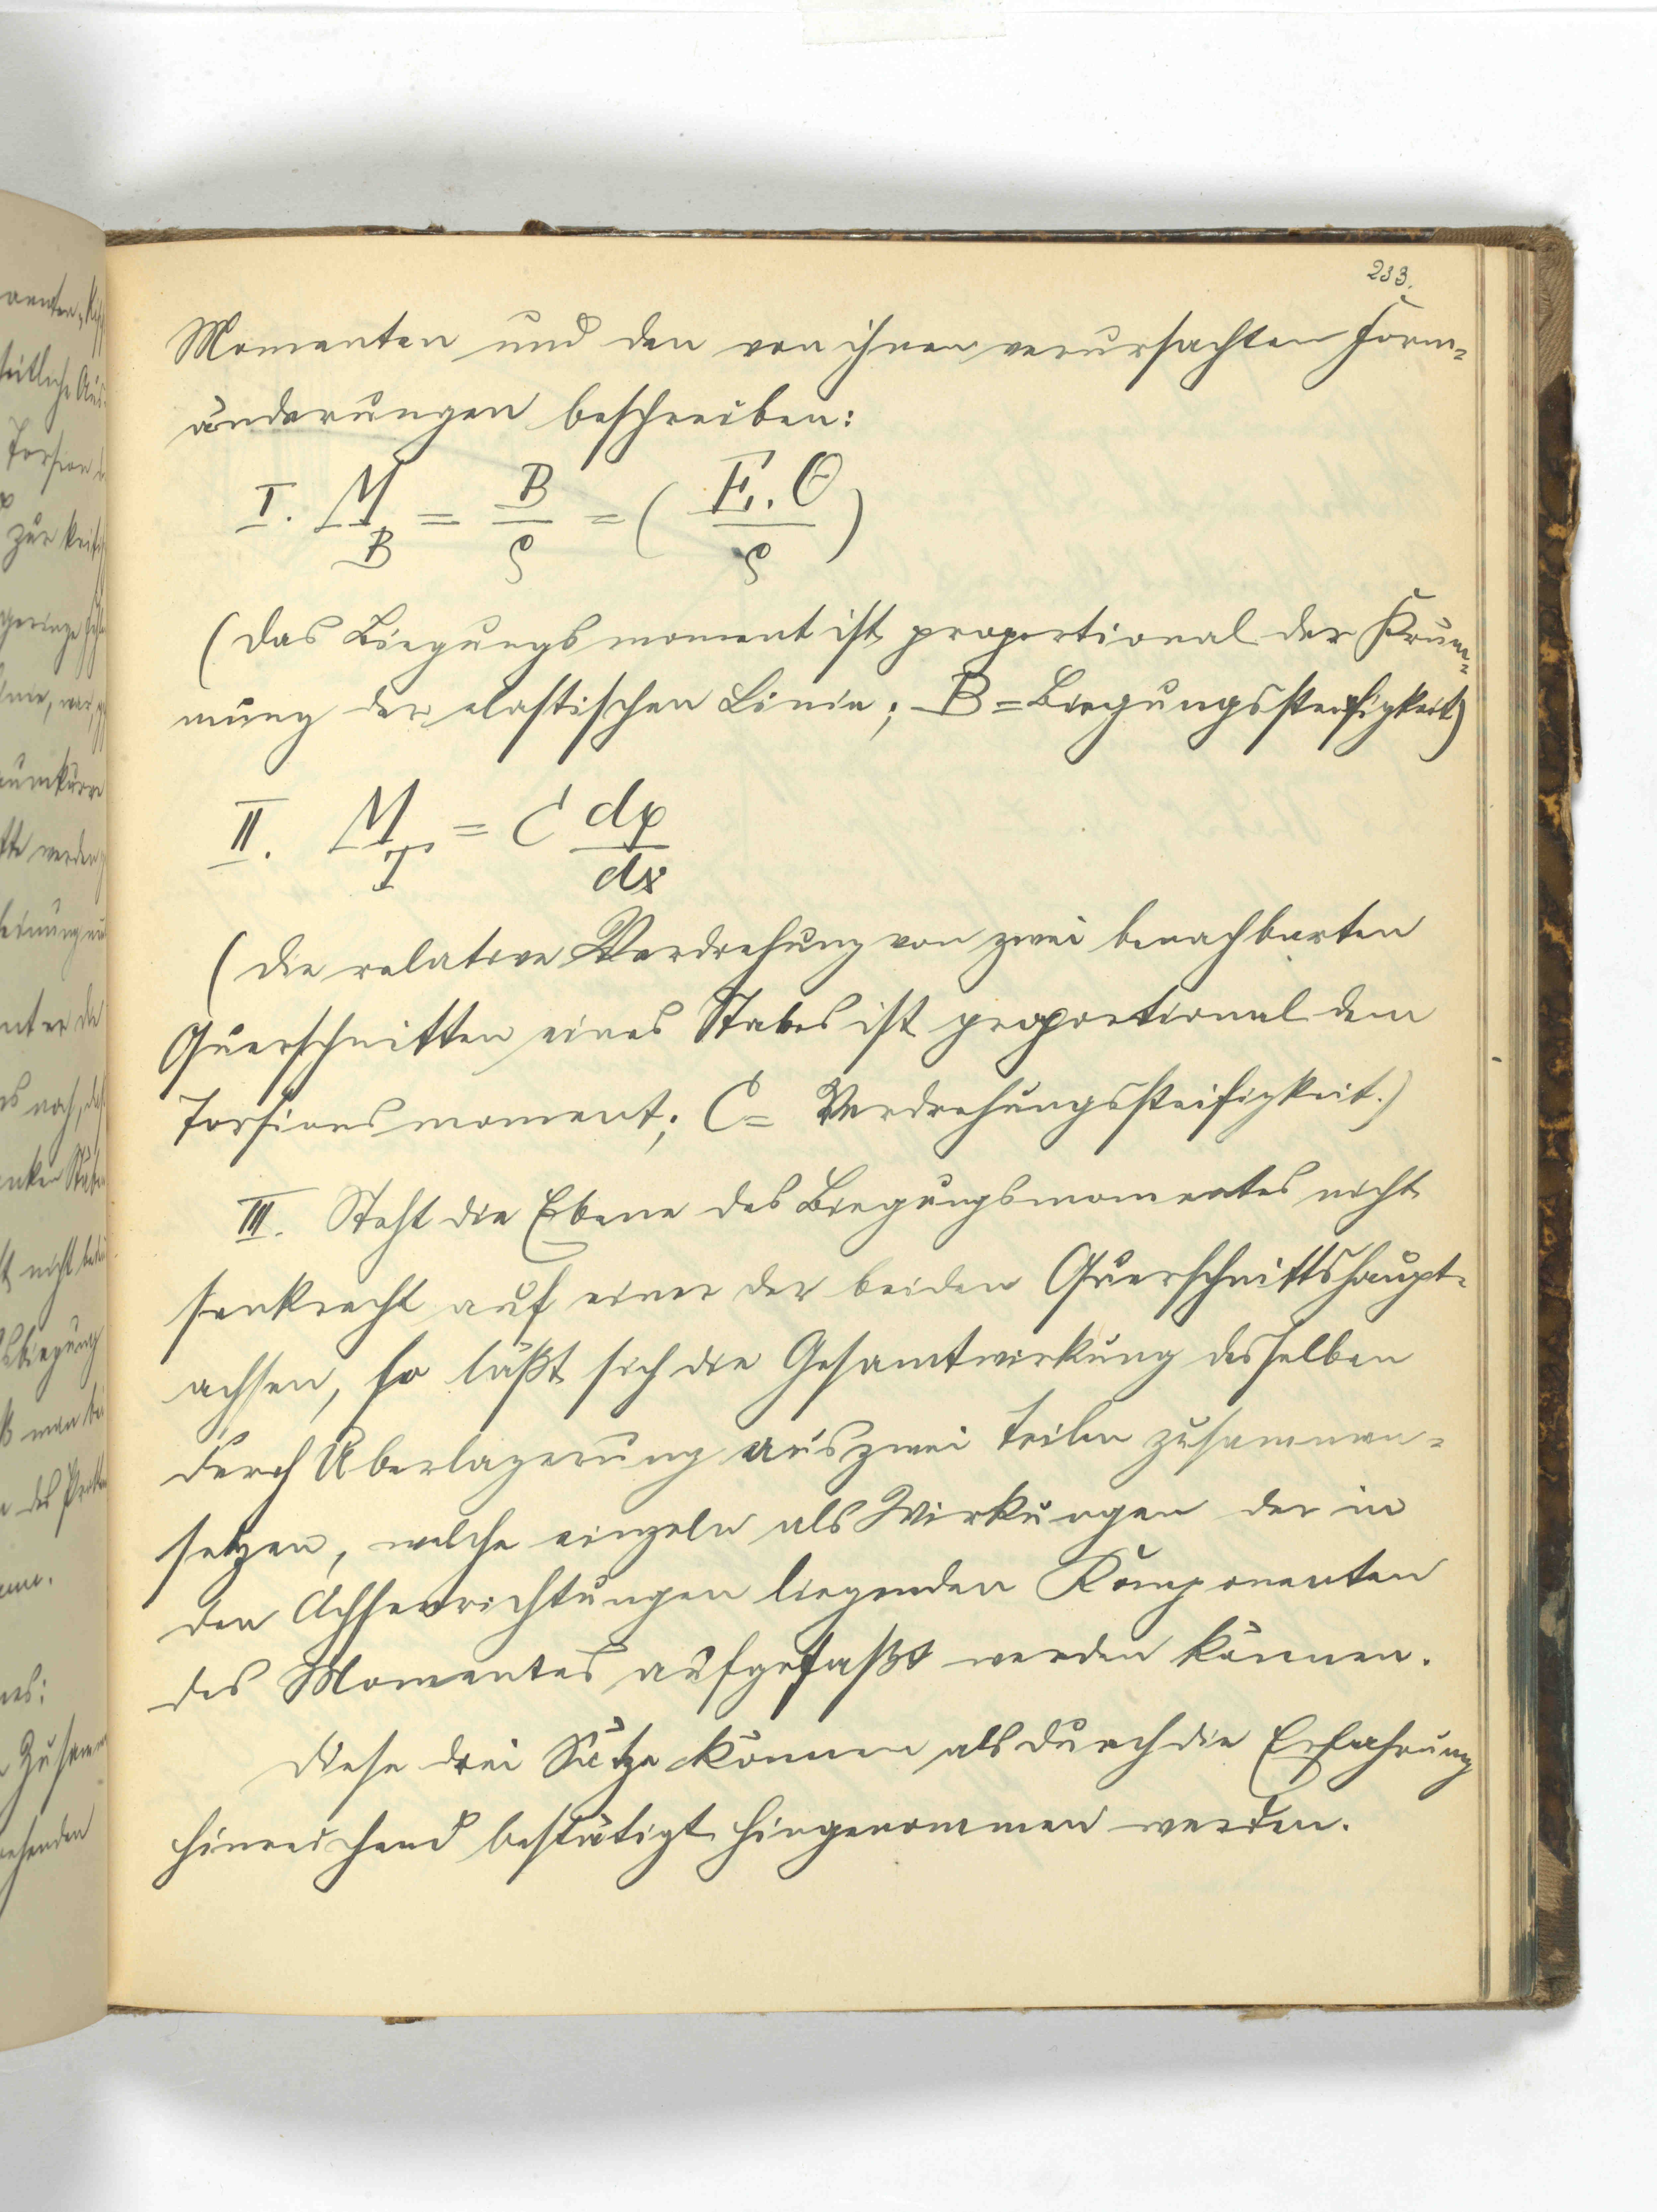 233.
Momenten und den von ihnen verursachten Form-
änderungen beschreiben:
I. M_B = B/ρ = (E.Θ/ρ)
(Das Biegungsmoment ist proportional der Krüm-
mung der elastischen Linie; B = Biegungssteifigkeit)
II. M_T = C dφ/dx
(Die relative Verdrehung von zwei benachbarten
Querschnitten eines Stabes ist proportional dem
Torsionsmoment; C = Verdrehungssteifigkeit.)
III. Steht die Ebene des Biegungsmomentes nicht
senkrecht auf einer der beiden Querschnittshaupt-
achsen, so läßt sich die Gesamtwirkung desselben
durch Überlagerung aus zwei Teilen zusammen-
setzen, welche einzeln als Wirkungen der in
den Achsenrichtungen liegenden Komponenten
des Momentes aufgefaßt werden können.
Diese drei Sätze können als durch die Erfahrung
hinreichend bestätigt hingenommen werden.